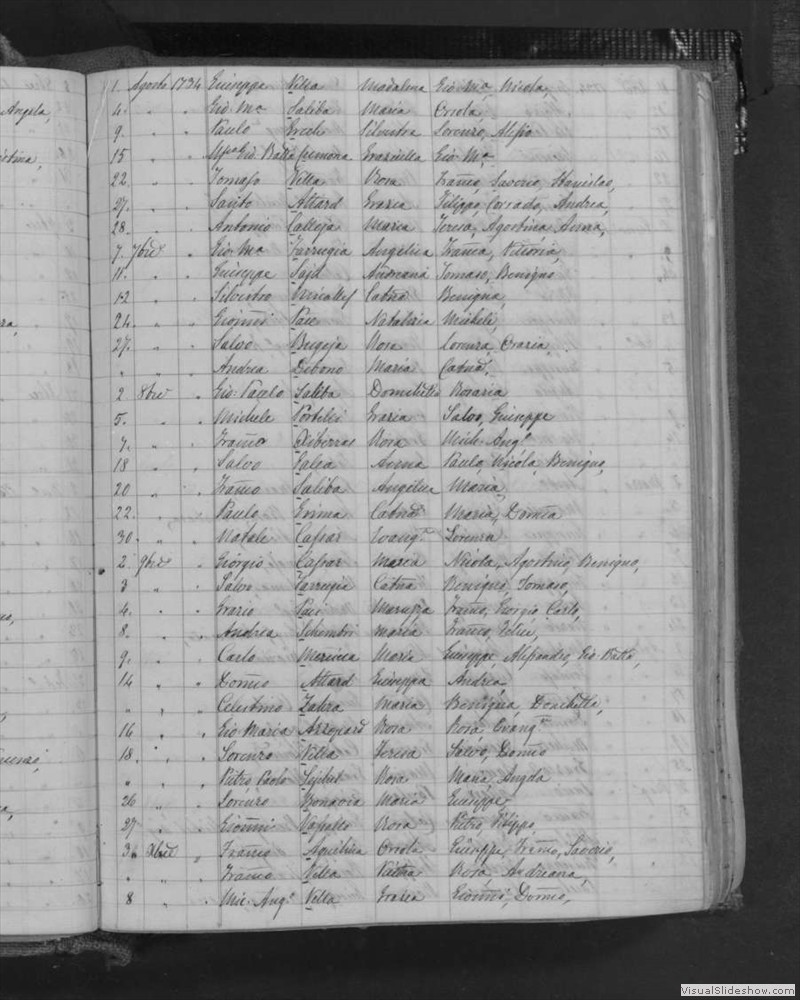 Angela,
1 Agosto 1734 Giuseppe Vella Madalena Gio Ma, Nicola,
4 " " Gio. Ma Saliba Maria Orsola,
9 " " Paulo Grech Silvestra Lorenzo, Alesio
15 " " Gio Batta Graziulla Gio Ma
22 " " Tomaso Vella Rosa Franco, Saverio, Stanislao,
27 " " Santo Attard Grazia Filippo, Corrado, Andrea,
28 " " Antonio Calleja Maria Teresa, Agostina, Anna,
7 7bre " Gio Ma Farrugia Angelica Franca, Vittoria,
11 " " Giuseppe Said Andreana Tomaso, Benigno
12 " " Silvestro Micallef Catna Benigna,
24 " " Gionni Pace Natalizia Michele,
27 " " Salvo Bugeja Rosa Lorenza, Grazia,
" " " Andrea Debono Maria Catna
2 8bre " Gio: Paolo Saliba Domitilla Rosaria
5 " " Michele Portelli Grazia Salvo, Giuseppe
7 " " Franco Xiberras Rosa Mich: Ango
18 " " Salvo Galea Anna Paulo, Nicola, Benigno,
20 " " Franco Saliba Angelica Maria,
22 " " Paulo Grima Catna Maria, Domca
30 " " Natale Caspar Evanga Lorenza
2 9bre " Giorgio Caspar Maria Nicola, Agostino, Benigno,
3 " " Salvo Farrugia Catna Benigno, Tomaso,
4 " " Grazio Pace Maruzza Franco, Giorgio, Carlo,
8 " " Andrea Schembri Maria Franco, Felice,
9 " " Carlo Mercieca Maria Giuseppe, Alesandro, Gio Batta,
14 " " Domco Attard Giuseppa Andrea
" " " Celestino Zahra Maria Benigna, Donatilla,
16 " " Gio Maria Azzopard Rosa Rosa, Evanga
18 " " Lorenzo Vella Teresa Salvo, Domco
" " " Pietro Paolo Rosa Maria Angela
26 " " Lorenzo Bonavia Maria Giuseppe
27 " " Gionni Vassallo Rosa Pietro, Filippo,
3 Xbre " Franco Aquilina Orsola Giuseppe, Franco, Saverio,
" " " Franco Vella Rosa Andreana,
8 " " Mic: Ango Vella Grazia Gionni, Domco,
VisualSlideshow.com